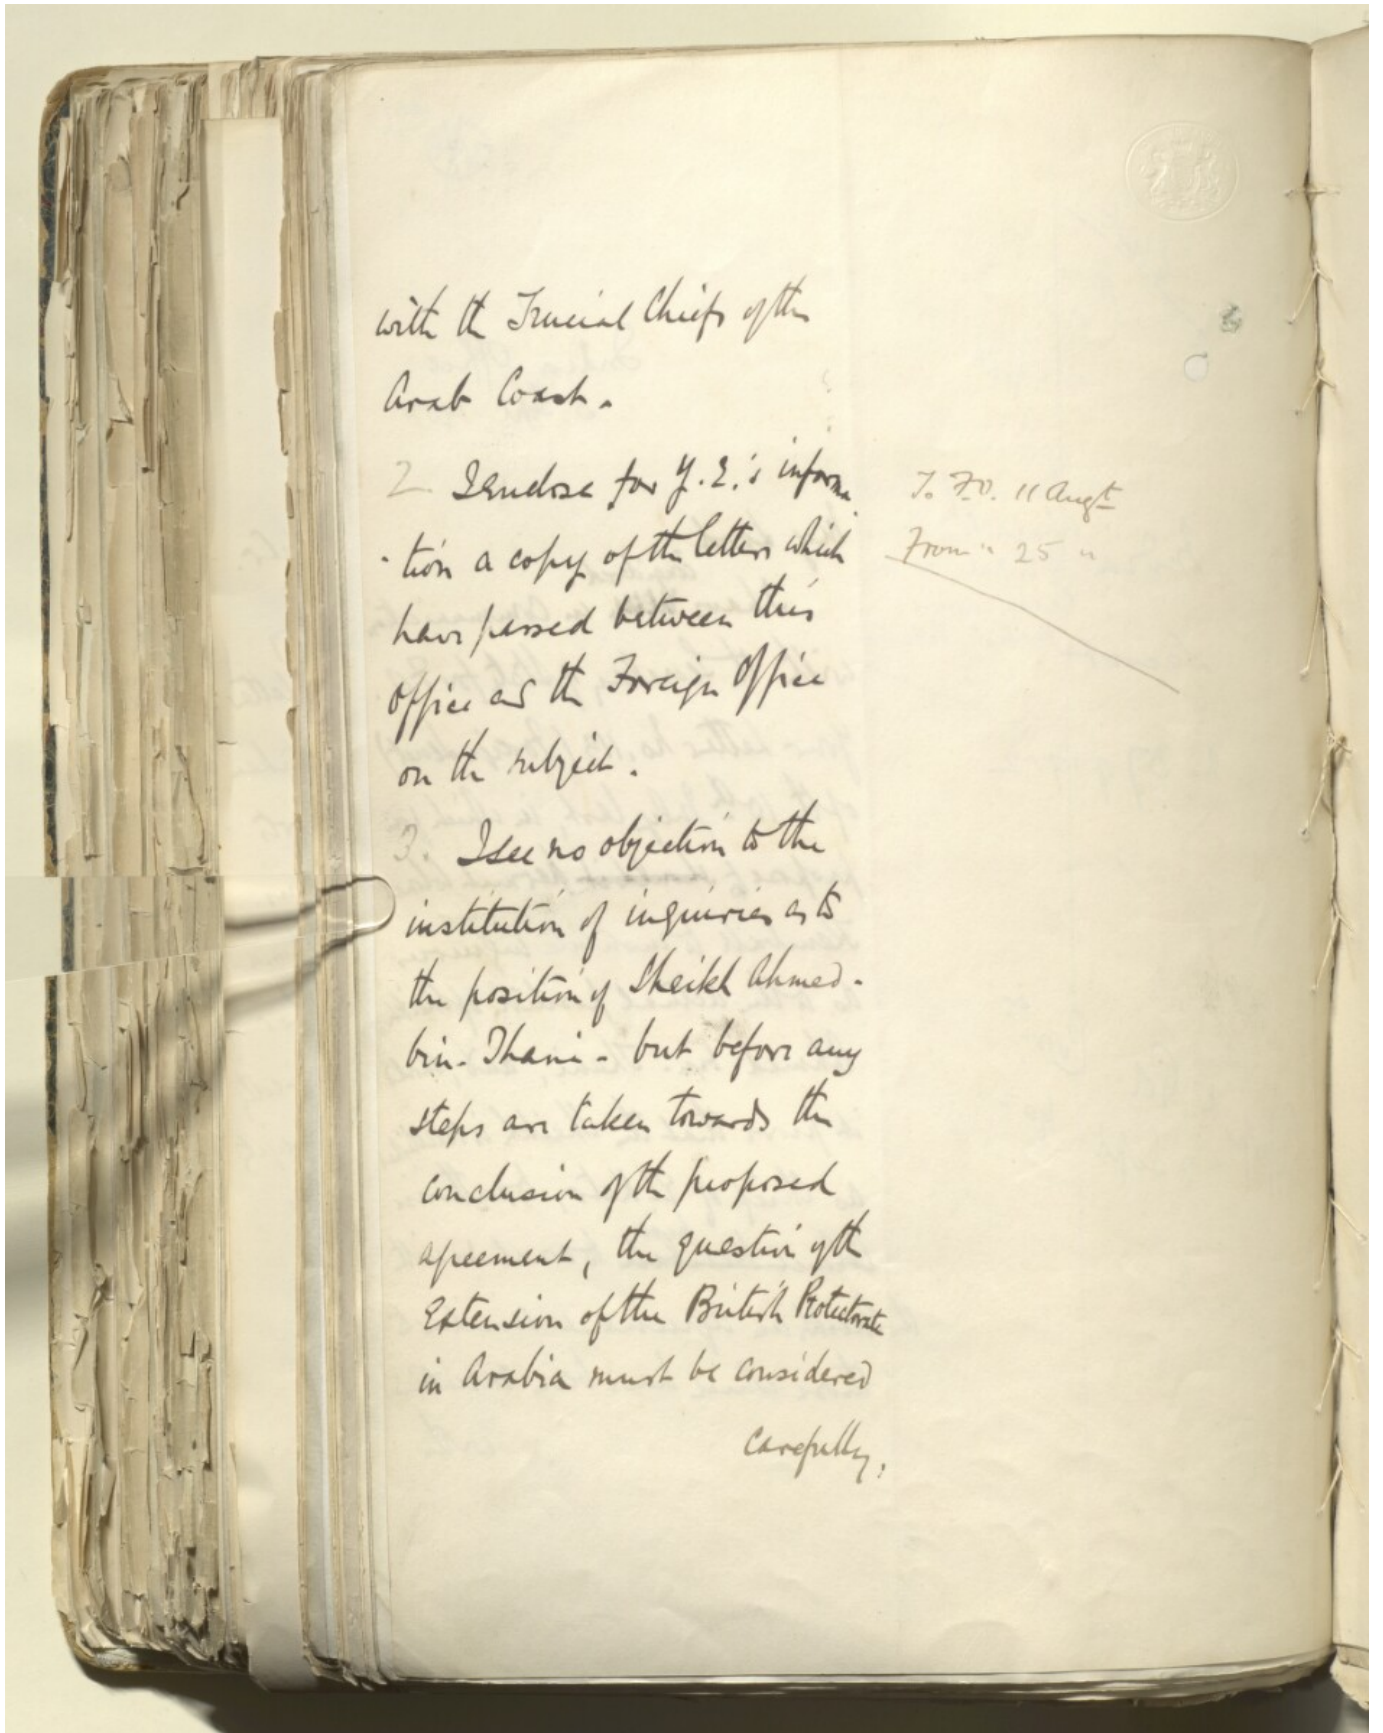 with the Trucial Chiefs of the
Arab Coast.
2. I enclose for Y.E.'s informa
-tion a copy of the letters which
have passed between this
Office and the Foreign Office
on the subject.
3. I see no objection to the
institution of inquiries as to
the position of Sheikh Ahmed-
bin-Thani - but before any
steps are taken towards the
conclusion of the proposed
agreement, the question of the
Extension of the British Protectorate
in Arabia must be considered
carefully,
To F.O. 11 Augt
From " 25 "